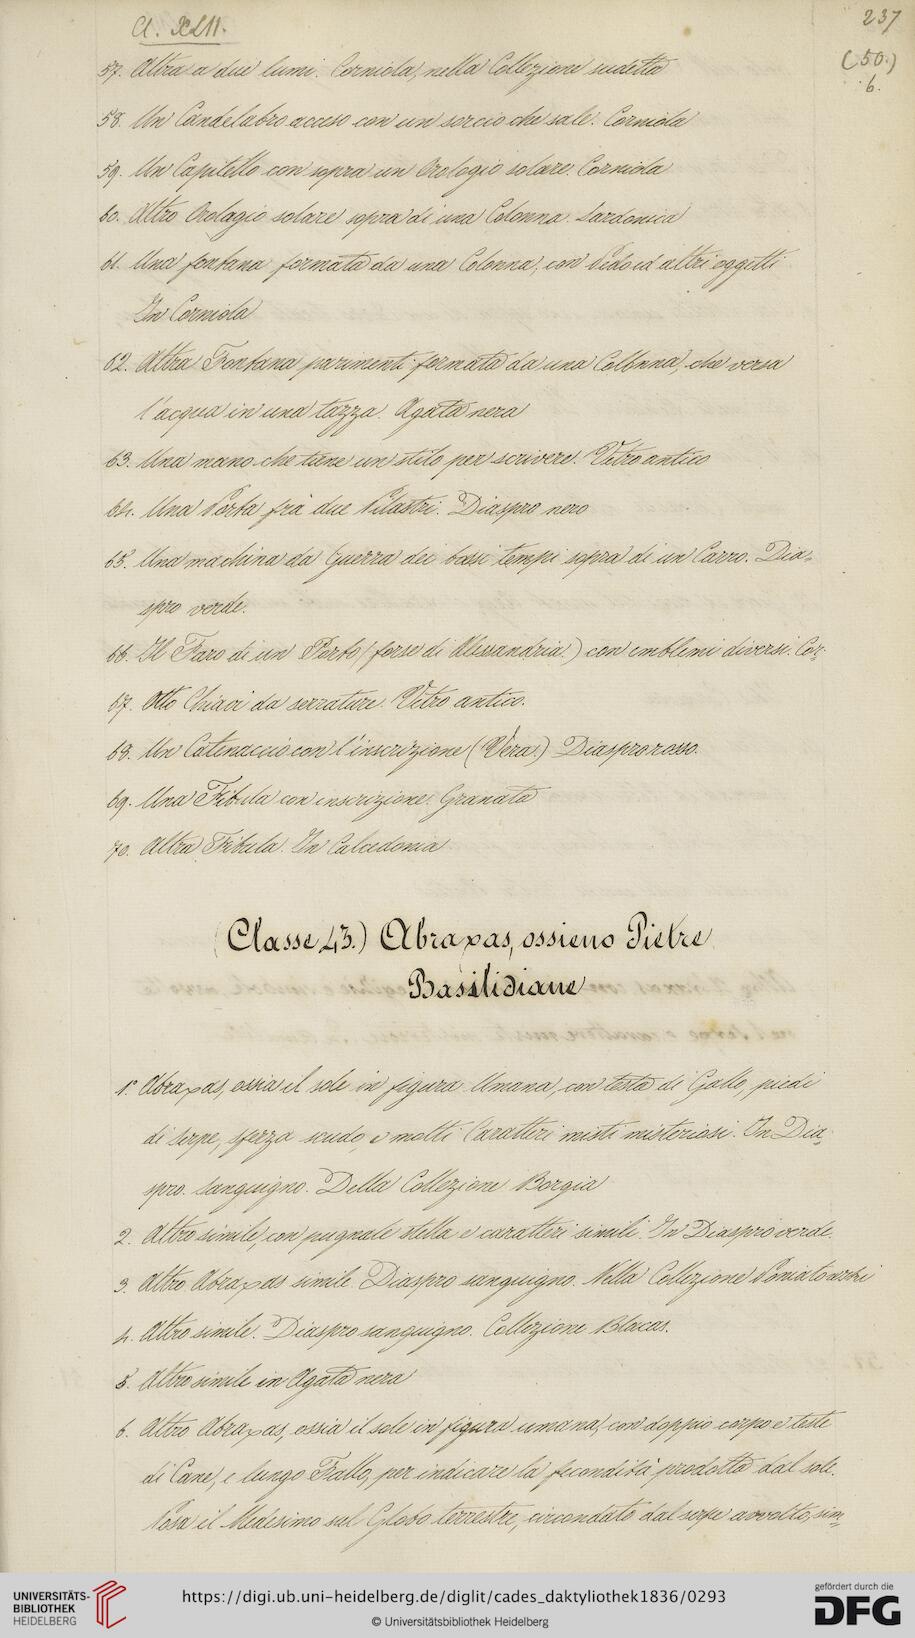 Cl. XLII.
237
(50.)
6.
57. Altra a due lumi. Corniola, nella Collezione sudetta
58. Un Candelabro acceso con un sorcio che sale. Corniola
59. Un Capitello con sopra un Orologio solare. Corniola
60. Altro Orologio solare sopra di una Colonna. Sardonica
61. Una fontana formata da una Colonna, con Vedo ed altri oggetti
In Corniola
62. Altra Fontana parimenti formata da una Colonna, che versa
l'acqua in una tazza. Agata nera
63. Una mano che tiene un stilo per scrivere. Vetro antico
64. Una Porta frà due Pilastri. Diaspro nero
65. Una machina da Guerra dei bassi tempi sopra di un Carro. Dia-
spro verde.
66. Il Faro di un Porto (forse di Alessandria.) con emblemi diversi. Cor:
67. Otto Chiavi da serrature. Vetro antico.
68. Un Catenaccio con l'inscrizione (Vera.) Diaspro rosso.
69. Una Fibula con inscrizione. Granata
70. Altra Fibula. In Calcedonia
(Classe 43.) Abraxas, ossieno Pietre
Basilidiane
1. Abraxas, ossia il sole in figura Umana, con testa di Gallo, piedi
di serpe, sferza scudo, e molti Caratteri misti misteriosi. In Dia-
spro Sanguigno. Della Collezione Borgia
2. Altro simile, con pugnale stella e caratteri simili. In Diaspro verde.
3. Altro Abraxas simile Diaspro sanguigno. Nella Collezione Poniatowski
4. Altro simile. Diaspro sanguigno. Collezione Blacas.
5. Altro simile in Agata nera
6. Altro Abraxas, ossia il sole in figura umana, con doppio corpo e teste
di Cane, e lungo Fallo, per indicare la fecondità prodotta dal sole.
Posa il Medesimo sul Globo terrestre, circondato dal serpe avvolto, sim-
UNIVERSITÄTS-
BIBLIOTHEK
HEIDELBERG
https://digi.ub.uni-heidelberg.de/diglit/cades_daktyliothek1836/0293
© Universitätsbibliothek Heidelberg
gefördert durch die
DFG